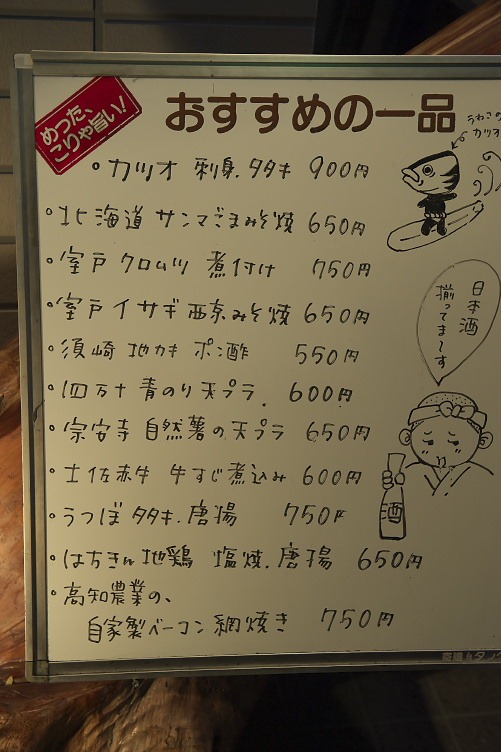 めった、
こりゃ旨い!
おすすめの一品
カツオ
・カツオ 刺身.タタキ 900円
・北海道 サンマごまみそ焼 650円
・室戸 クロムツ 煮付け 750円
・室戸イサギ西京みそ焼 650円
・須崎 地カキ ポン酢 550円
・四万十 青のり天プラ. 600円
・宗安寺 自然薯の天プラ 650円
・土佐赤牛 牛すじ煮込み 600円
・うつぼ タタキ.唐揚 750円
・はちきん地鶏 塩焼.唐揚 650円
・高知農業の、
自家製ベーコン網焼き 750円
日本酒
揃ってま〜す
酒